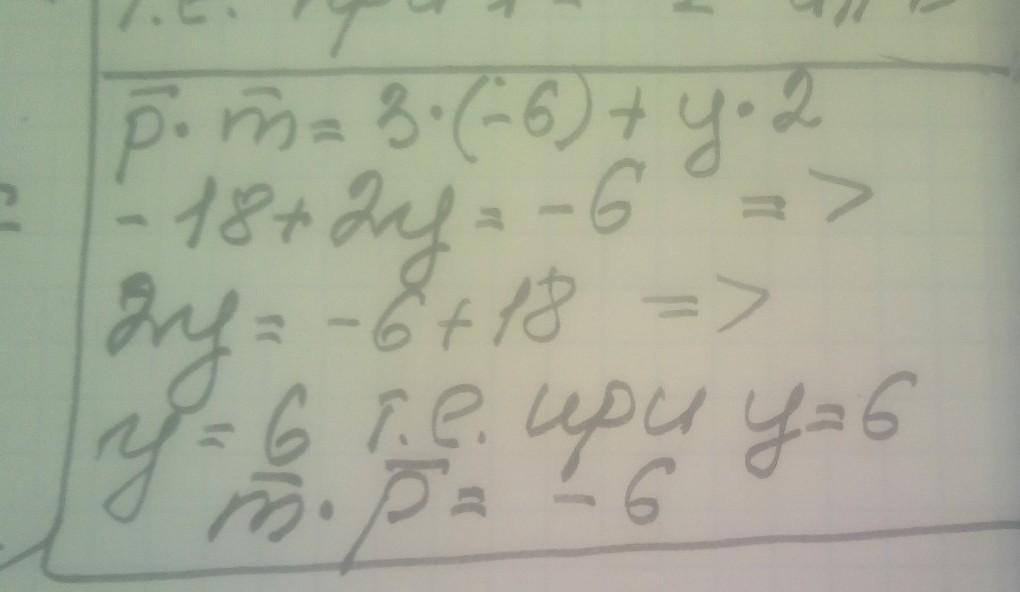 т.е. при
p̅ · m̅ = 3 · (-6) + y · 2
- 18 + 2y = - 6 =>
2y = - 6 + 18 =>
y = 6 т.е. при y = 6
m̅ · p̅ = - 6